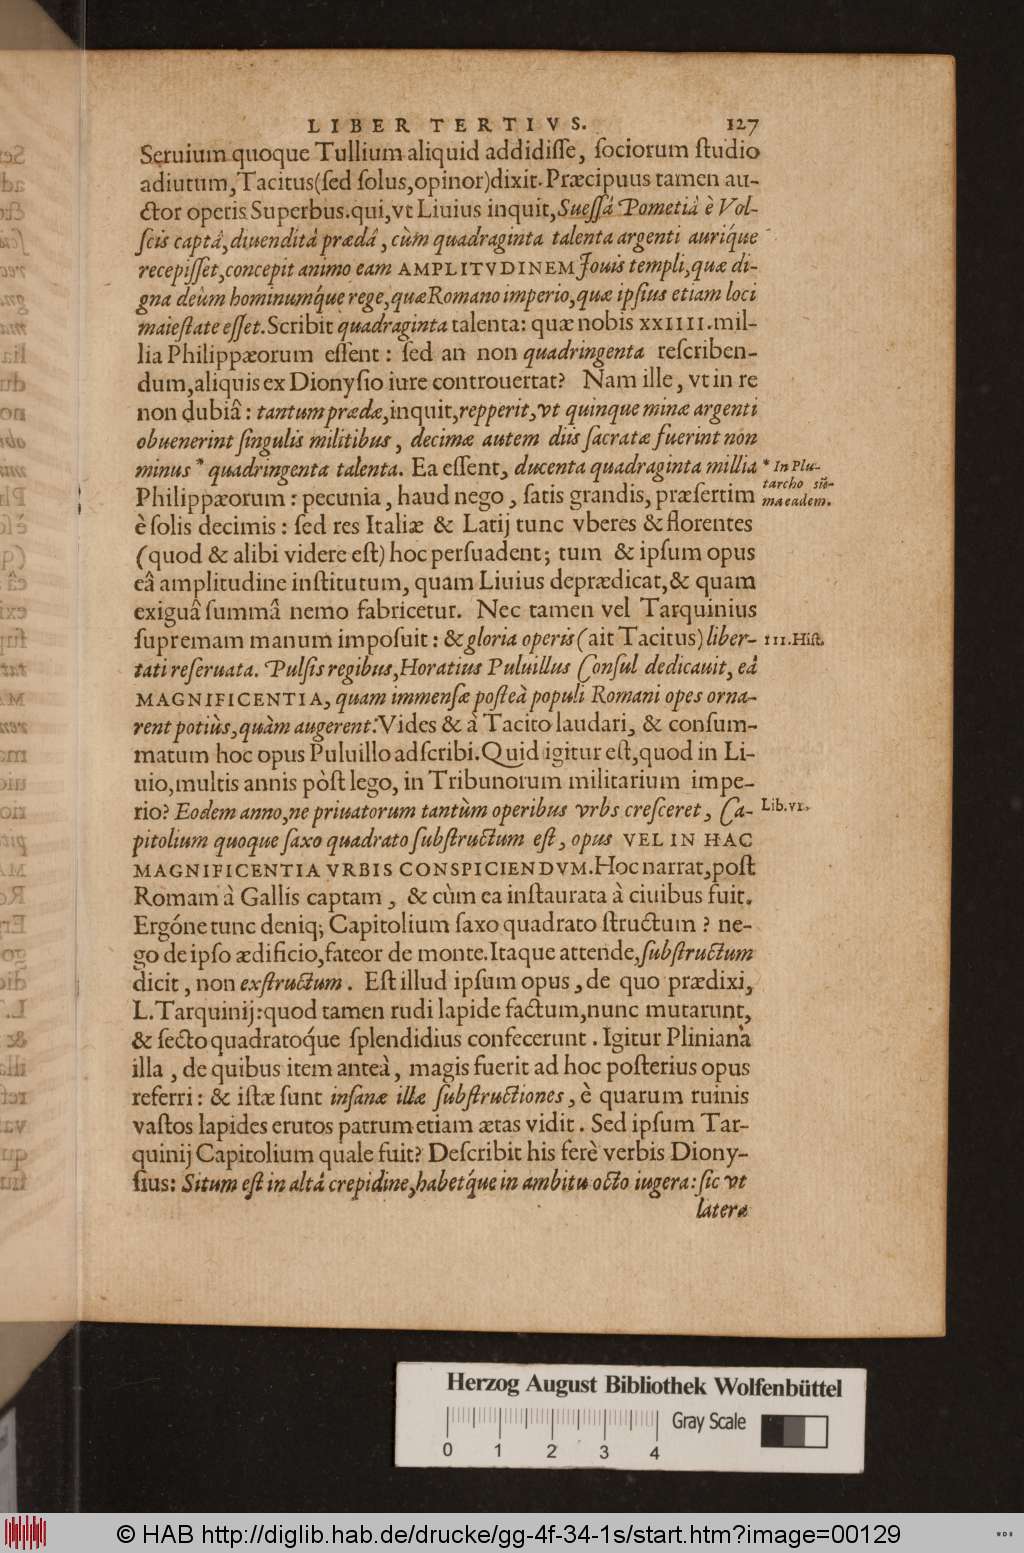 LIBER TERTIVS. 127
Seruium quoque Tullium aliquid addidiſſe, ſociorum ſtudio
adiutum, Tacitus (ſed ſolus, opinor) dixit. Præcipuus tamen au-
ctor operis Superbus. qui, vt Liuius inquit, Sueſſâ Pometiâ è Vol-
ſcis captâ, diuenditâ prædâ, cùm quadraginta talenta argenti auriq́ue
recepiſſet, concepit animo eam AMPLITVDINEM Jouis templi, quæ di-
gna deûm hominumq́ue rege, quæ Romano imperio, quæ ipſius etiam loci
maieſtate eſſet. Scribit quadraginta talenta: quæ nobis XXIIII. mil-
lia Philippæorum eſſent: ſed an non quadringenta reſcriben-
dum, aliquis ex Dionyſio iure controuertat? Nam ille, vt in re
non dubiâ: tantum prædæ, inquit, repperit, vt quinque minæ argenti
obuenerint ſingulis militibus, decimæ autem diis ſacratæ fuerint non
minus * quadringenta talenta. Ea eſſent, ducenta quadraginta millia
* In Plu-
tarcho sũ-
ma eadem.
Philippæorum: pecunia, haud nego, ſatis grandis, præſertim
è ſolis decimis: ſed res Italiæ & Latij tunc vberes & florentes
(quod & alibi videre eſt) hoc perſuadent; tum & ipſum opus
eâ amplitudine inſtitutum, quam Liuius deprædicat, & quam
exiguâ ſummâ nemo fabricetur. Nec tamen vel Tarquinius
ſupremam manum impoſuit: & gloria operis (ait Tacitus) liber-
III. Hiſt.
tati reſeruata. Pulſis regibus, Horatius Puluillus Conſul dedicauit, eâ
MAGNIFICENTIA, quam immenſæ poſteà populi Romani opes orna-
rent potiùs, quàm augerent. Vides & à Tacito laudari, & conſum-
matum hoc opus Puluillo adſcribi. Quid igitur eſt, quod in Li-
uio, multis annis pòſt lego, in Tribunorum militarium impe-
rio? Eodem anno, ne priuatorum tantùm operibus vrbs creſceret, Ca-
Lib. VI.
pitolium quoque ſaxo quadrato ſubſtructum eſt, opus VEL IN HAC
MAGNIFICENTIA VRBIS CONSPICIENDVM. Hoc narrat, poſt
Romam à Gallis captam, & cùm ea inſtaurata à ciuibus fuit.
Ergóne tunc deniq; Capitolium ſaxo quadrato ſtructum? ne-
go de ipſo ædificio, fateor de monte. Itaque attende, ſubſtructum
dicit, non exſtructum. Eſt illud ipſum opus, de quo prædixi,
L. Tarquinij: quod tamen rudi lapide factum, nunc mutarunt,
& ſecto quadratoq́ue ſplendidius confecerunt. Igitur Pliniana
illa, de quibus item anteà, magis fuerit ad hoc poſterius opus
referri: & iſtæ ſunt inſanæ illæ ſubſtructiones, è quarum ruinis
vaſtos lapides erutos patrum etiam ætas vidit. Sed ipſum Tar-
quinij Capitolium quale fuit? Deſcribit his ferè verbis Diony-
ſius: Situm eſt in altâ crepidine, habetq́ue in ambitu octo iugera: ſic vt
latera
Herzog August Bibliothek Wolfenbüttel
0 1 2 3 4 Gray Scale
© HAB http://diglib.hab.de/drucke/gg-4f-34-1s/start.htm?image=00129